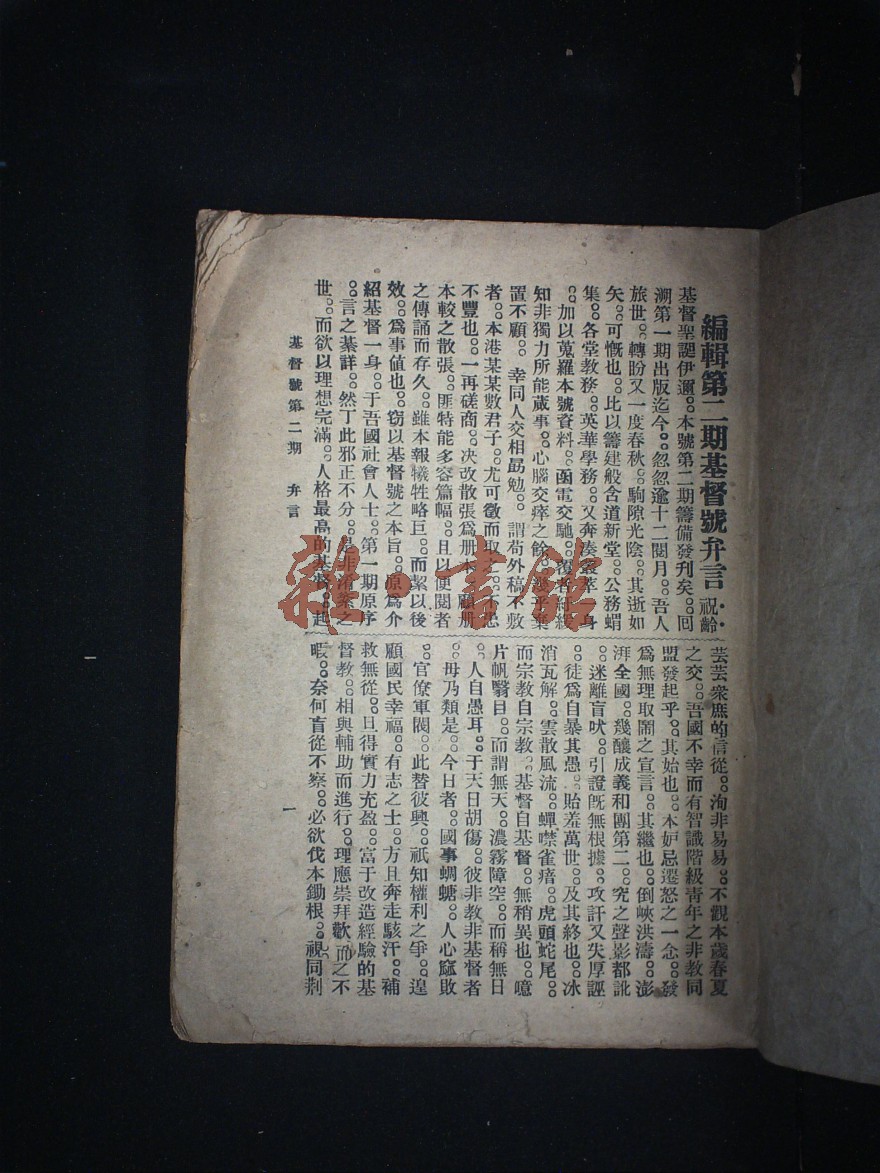 編輯第二期基督號弁言 祝齡
基督聖誕伊邇。。本號第二期籌備發刋矣。。囘
溯第一期出版迄今。。忽忽逾十二閱月。。吾人
旅世。。轉盼又一度春秋。。駒隙光陰。。其逝如
矢。。可慨也。。比以籌建般含道新堂。。公務蝟
集。。各堂敎務。。英華學務。。又奔湊叢萃一身
。。加以蒐羅本號資料。。函電交馳。。
知非獨力所能蕆事。。心腦交瘁之餘。。幾乎棄
置不顧。。幸同人交相勗勉。。謂苟外稿不敷
者。。本港某某數君子。。尤可徵而取之。。不患
不豐也。。一再磋商。。决改散張爲册本。。顧册
本較之散張。。匪特能多容篇幅。。且以便閱者
之傳誦而存久。。雖本報犧牲略巨。。而絜以後
效。。爲事値也。。窃以基督號之本旨。。原爲介
紹基督一身。。于吾國社會人士。。第一期原序
。。言之綦詳。。然丁此邪正不分。。是非淆紊之
世。。而欲以理想完滿。。人格最高的基督。。起
芸芸衆庶的信從。。洵非易易。。不觀本歲春夏
之交。。吾國不幸而有智識階級靑年之非敎同
盟發起乎。。其始也。。本妒忌遷怒之一念。。發
爲無理取鬧之宣言。。其繼也。。倒峽洪濤。。澎
湃全國。。幾釀成義和團第二。。究之聲影都訛
。。迷離盲吠。。引證旣無根據。。攻訐又失厚誣
。。徒爲自暴其愚。。貽羞萬世。。及其終也。。冰
消瓦解。。雲散風流。。蟬噤雀瘖。。虎頭蛇尾。。
而宗敎自宗敎。。基督自基督。。無稍異也。。噫
片帆翳目。。而謂無天。。濃霧障空。。而稱無日
。。人自愚耳。。于天日胡傷。。彼非敎非基督者
。。毋乃類是。。今日者。。國事蜩螗。。人心窳敗
。。官僚軍閥。。此替彼興。。祇知權利之爭。。遑
顧國民幸福。。有志之士。。方且奔走駭汗。。補
救無從。。旦得實力充盈。。富于改造經驗的基
督敎。。相與輔助而進行。。理應崇拜歡迎之不
暇。。奈何盲從不察。。必欲伐本鋤根。。視同荆
基督號第二期 弁言
一
雜·書館